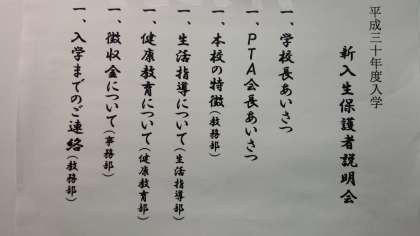 平成三十年度入学
新入生保護者説明会
一、学校長あいさつ
一、PTA会長あいさつ
一、本校の特徴(教務部)
一、生活指導について(生活指導部)
一、健康教育について(健康教育部)
一、徴収金について(事務部)
一、入学までのご連絡(教務部)